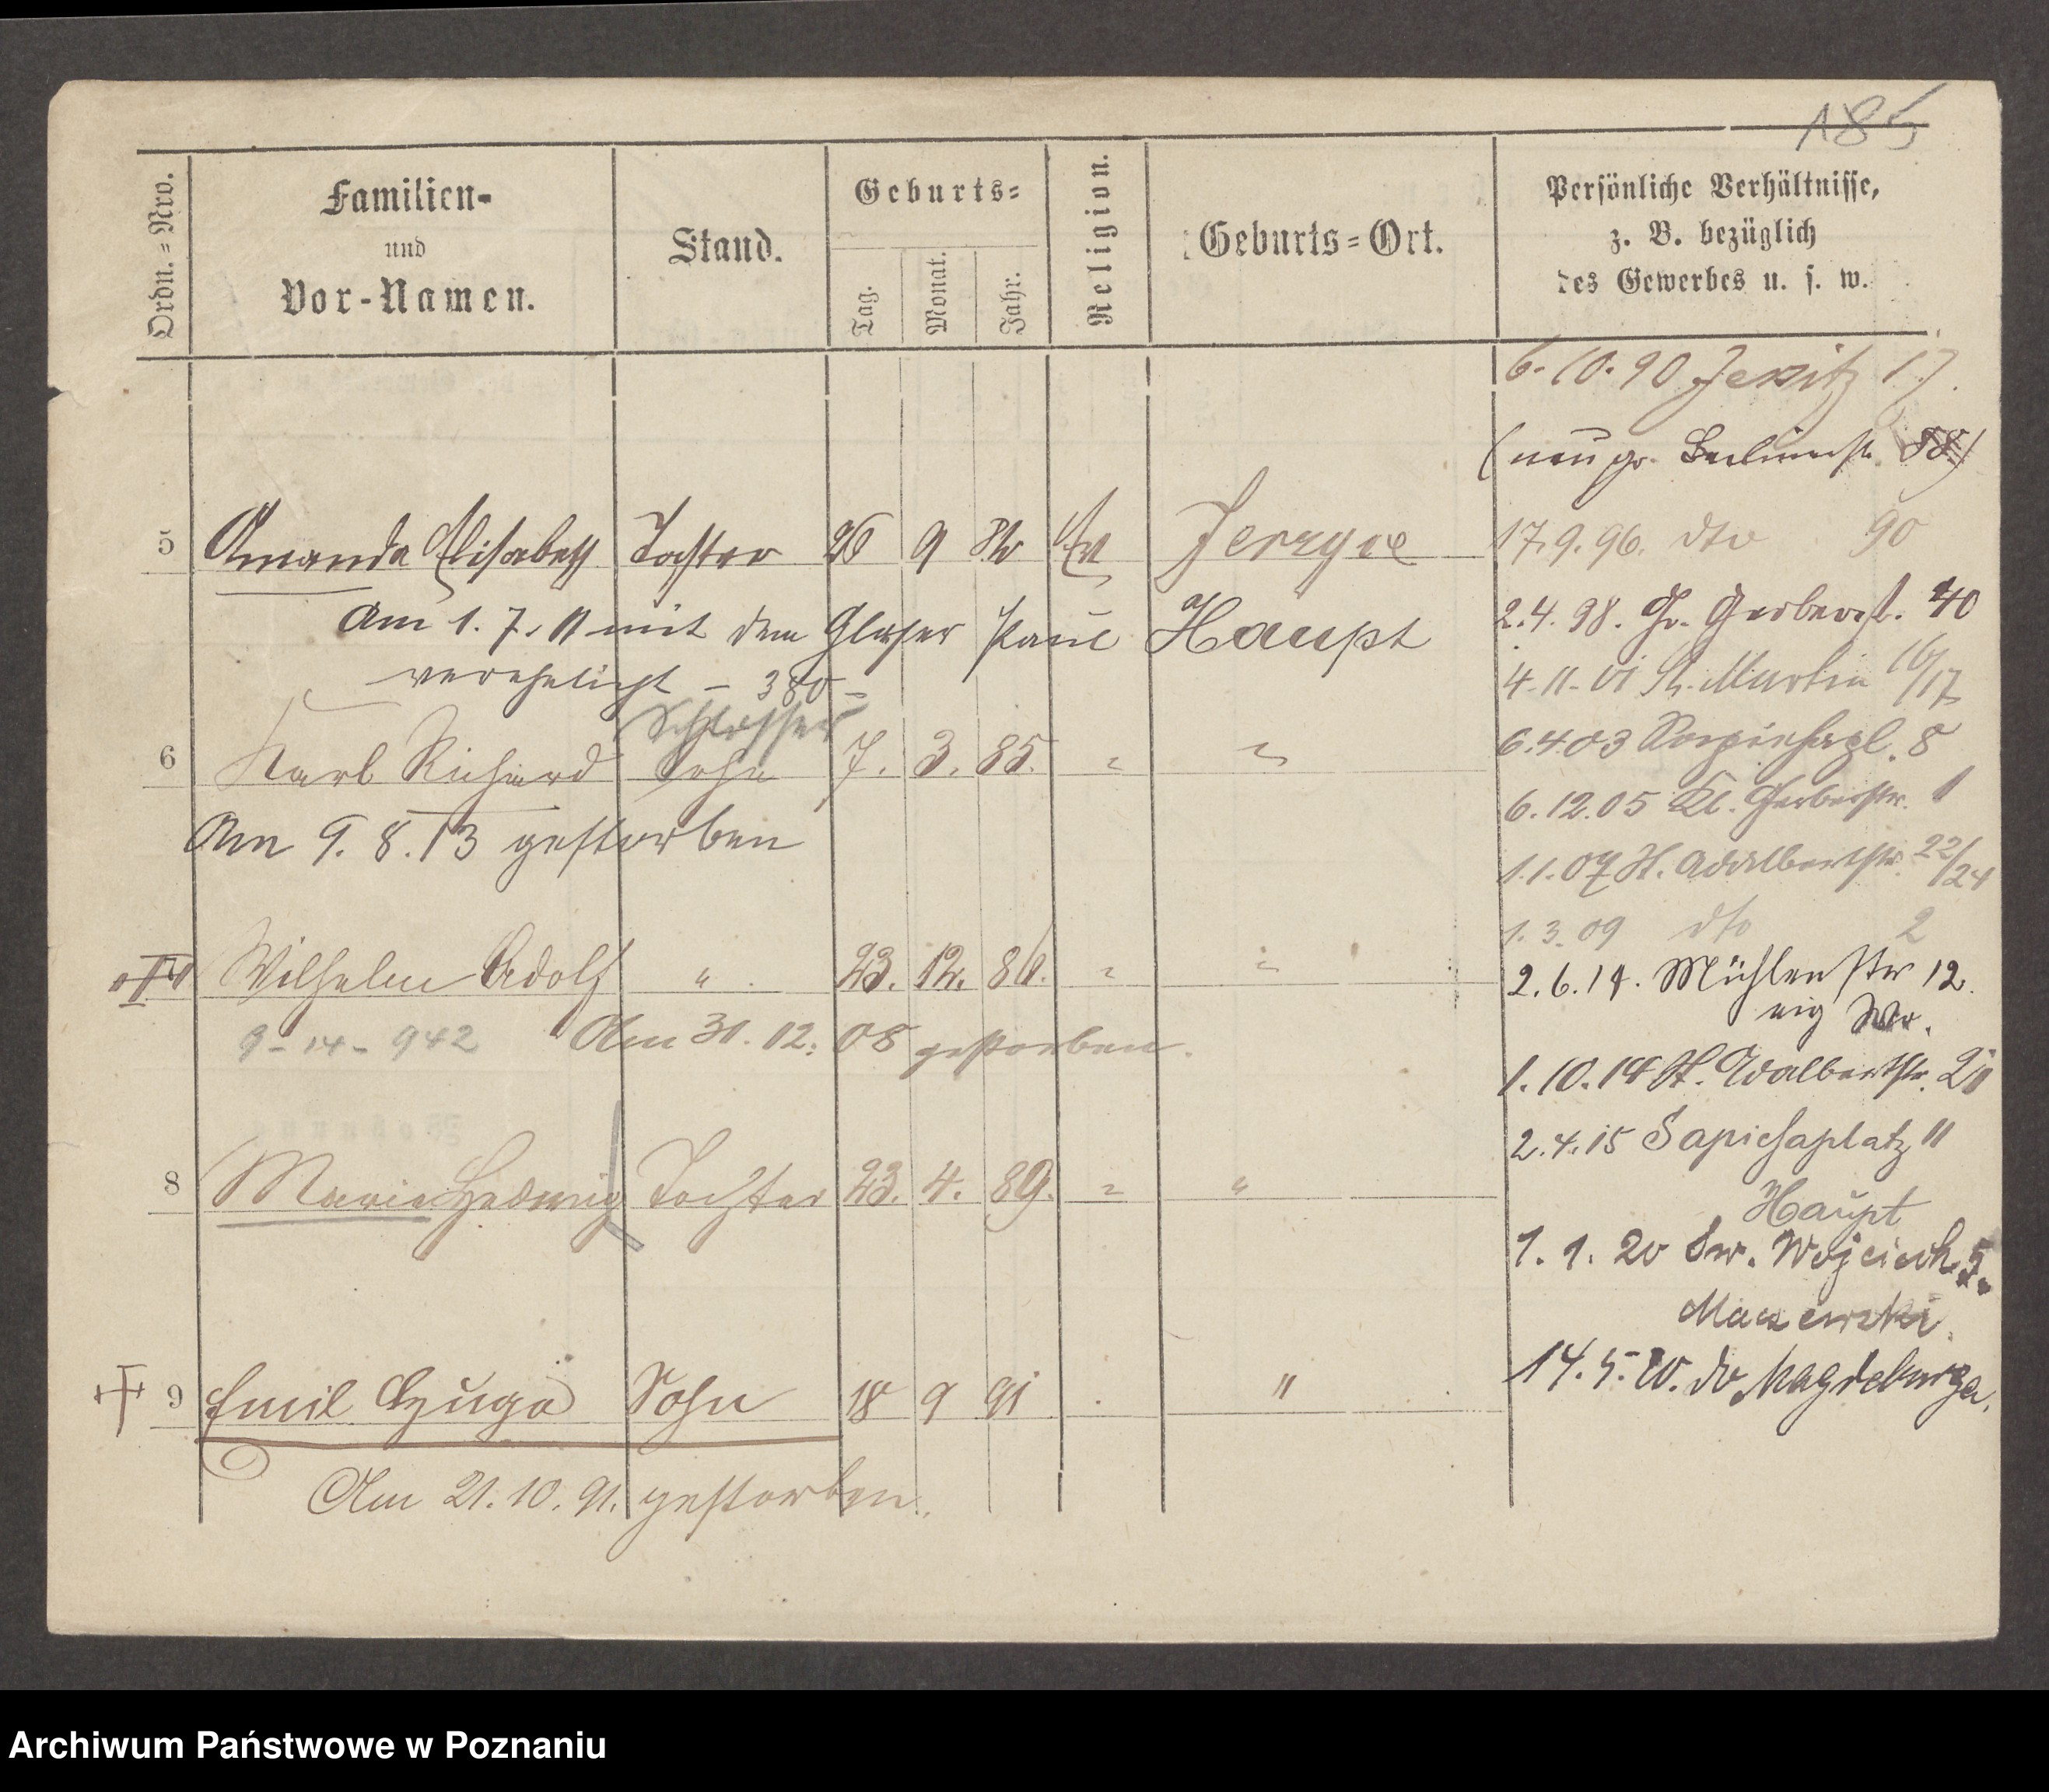 185
Ordn.=Nro.
Familien-
und
Vor-Namen.
Stand.
Geburts=
Tag.
Monat.
Jahr.
Religion.
Geburts=Ort.
Persönliche Verhältnisse,
z. B. bezüglich
des Gewerbes u. s. w.
6.10.90 Jersitz 17.
(neu gr. Berlinerstr. 88)
5 Amanda Elisabeth Tochter 26 9 Ev Jerzyce
17.9.96. dto 90
Am 1. 7. 11 mit dem Glaser Paul Haupt
2.4.98. Gr. Gerberst. 40
verehelicht - 380 -
4.11.01 St. Martin 16/17
Schlosser
6 Karl Richard Sohn 7. 3. 85. " "
6.4.03 Sapiehapl. 8
6.12.05 Kl. Gerberstr. 1
Am 9. 8. 13 gestorben
1.1.07 St. Adalbertstr. 22/24
1.3.09 dto 2
Wilhelm Adolf " 23. 12. 86. " "
2.6.14. Mühlenstr 12.
9-14-942 Am 31. 12. 08 gestorben.
1.10.14 St. Adalbertstr.
2.4.15 Sapiehaplatz 11
8 Marie Hedwig Tochter 23. 4. 89. " "
Haupt
1. 1. 20 Św. Wojciech 5.
9 Emil Hugo Sohn 18 9 91 "
14.5.20. do Magdeburga.
Am 21.10.91. gestorben.
Archiwum Państwowe w Poznaniu